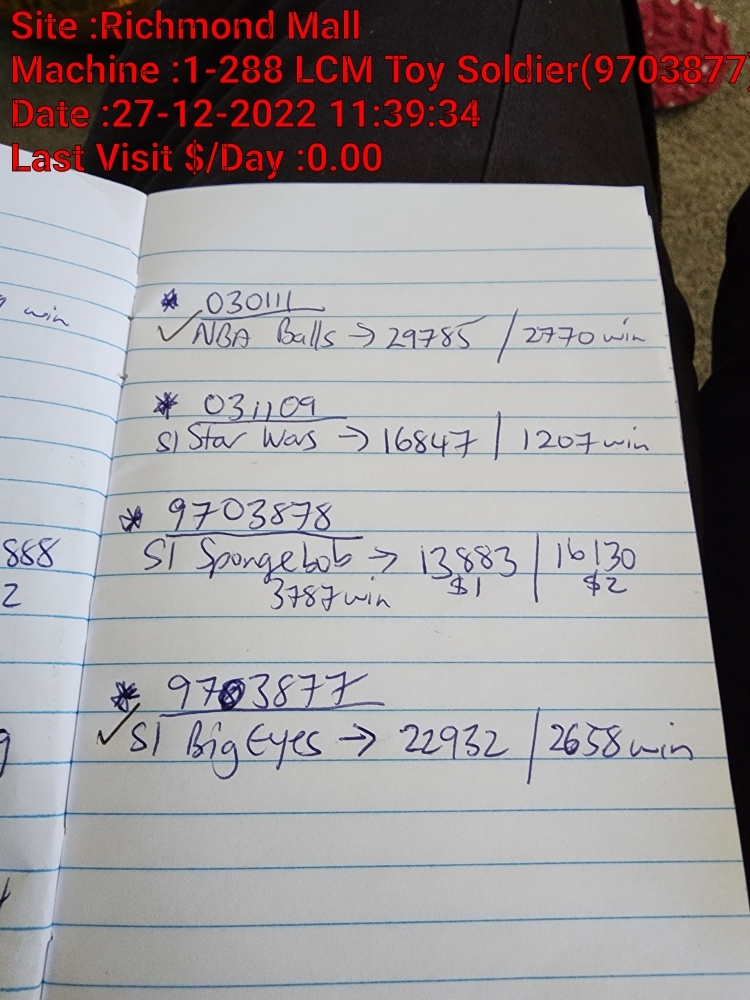 Site :Richmond Mall
Machine :1-288 LCM Toy Soldier(9703877)
Date :27-12-2022 11:39:34
Last Visit $/Day :0.00
win
* 030111
✓ NBA Balls → 29785 / 2770 win
* 031109
S1 Star Wars → 16847 | 1207 win
* 9703878
S1 Spongebob → 13883 | 16130
3787 win $1 $2
888
2
* 9703877
✓ S1 Big Eyes → 22932 / 2658 win